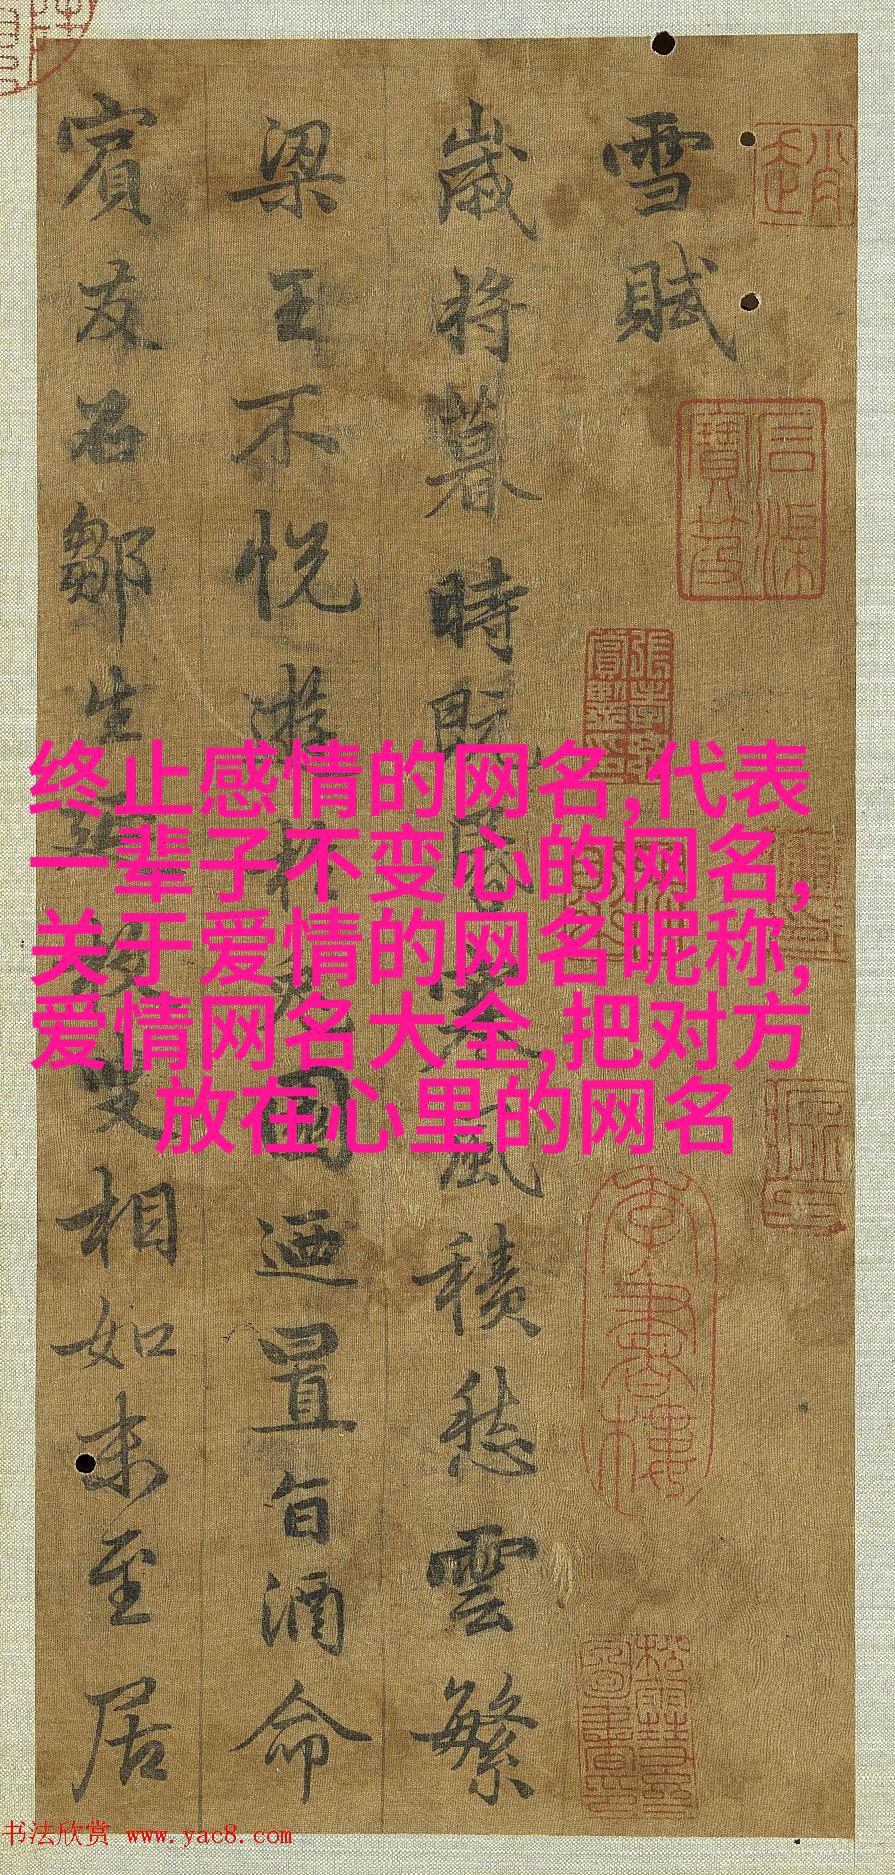 雪賦
歲將暮時既昏寒風積愁雲繁
梁王不悅游於兔園迺置旨酒命
賓友召鄒生延枚叟相如末至居
终止感情的网名,代表
一辈子不变心的网名,
关于爱情的网名昵称,
爱情网名大全,把对方
放在心里的网名
书法欣赏 www.yac8.com